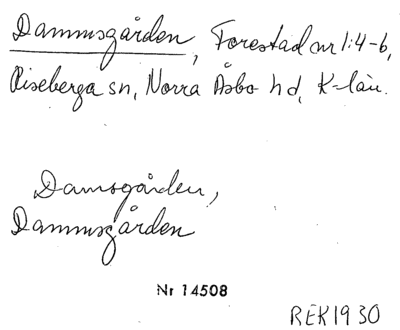 Dammsgården, Forestad nr 1:4-6,
Riseberga sn, Norra Åsbo hd, K-län.
Damsgården,
Dammsgården
Nr 14508
REK1930